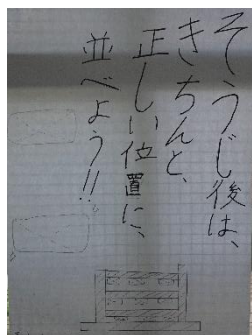 そうじ後は、
きちんと、
正しい位置に、
並べよう!!